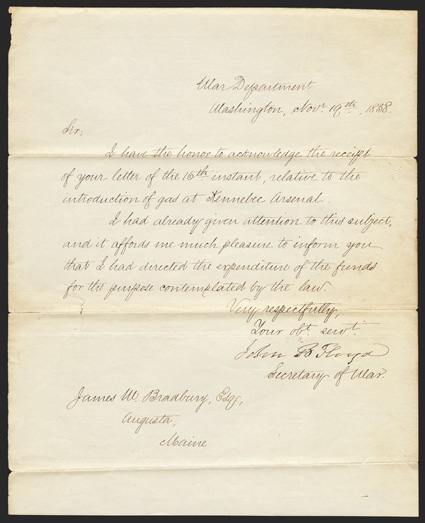 War Department
Washington, Novr. 19th, 1858.
Sir:
I have the honor to acknowledge the receipt
of your letter of the 16th instant, relative to the
introduction of gas at Kennebec Arsenal.
I had already given attention to this subject,
and it affords me much pleasure to inform you
that I had directed the expenditure of the funds
for the purpose contemplated by the law.
Very respectfully,
Your obt. servt.
John B Floyd
Secretary of War.
James W Bradbury, Esq,
Augusta,
Maine